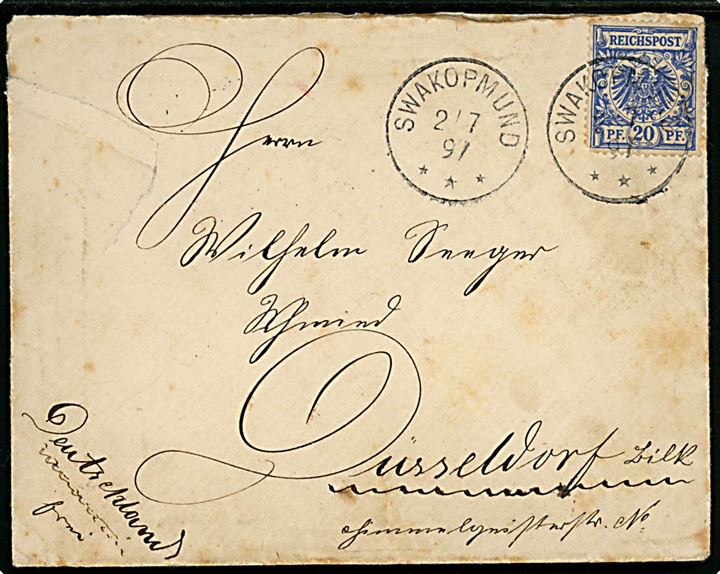 REICHSPOST
PF. 20 PF.
SWAKOPMUND
2/7
97
SWAK
97
Herrn
Wilhelm Seeger
Schmied
Düsseldorf Bilk
Himmelgeisterstr. No
Deutschland
frei